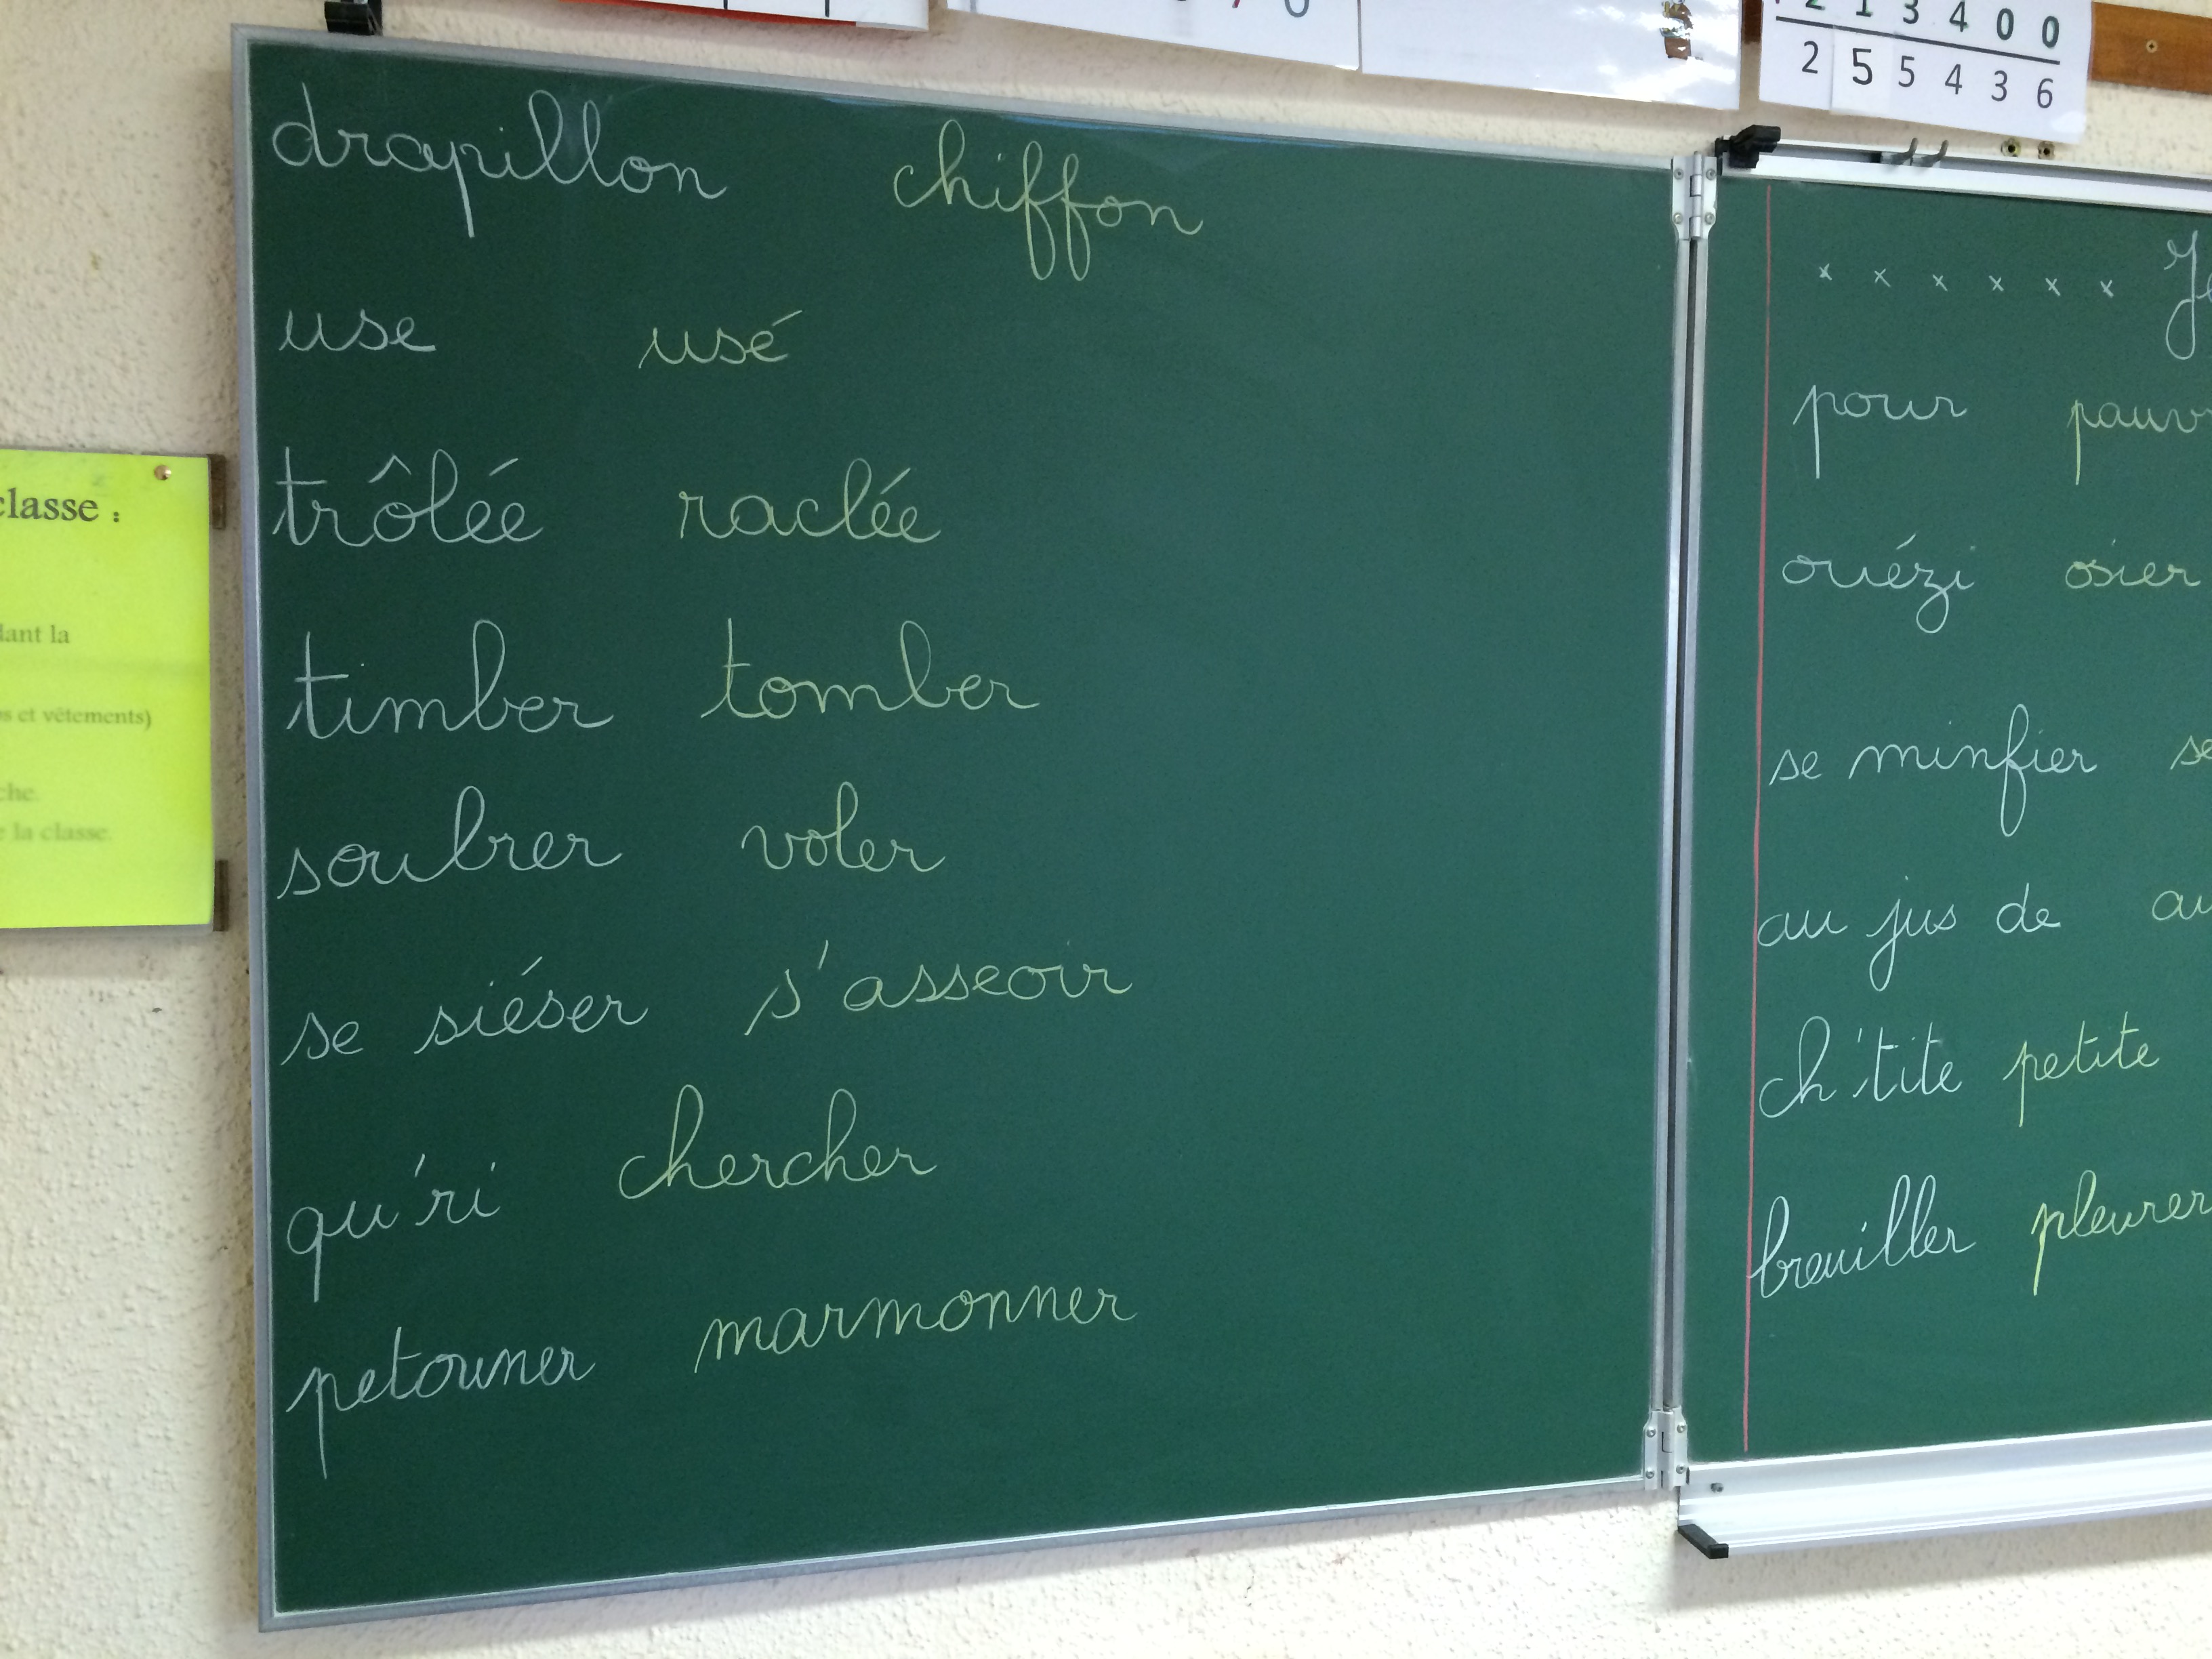 2 1 3 4 0 0
2 5 5 4 3 6
classe :
dant la
s et vêtements)
che.
e la classe.
drapillon chiffon
use usé
trôlée raclée
timber tomber
soubrer voler
se siéser s'asseoir
qu'ri chercher
petouner marmonner
x x x x x x Je
pour pauv
ouézi osier
se minfier se
au jus de au
ch'tite petite
breuiller pleurer